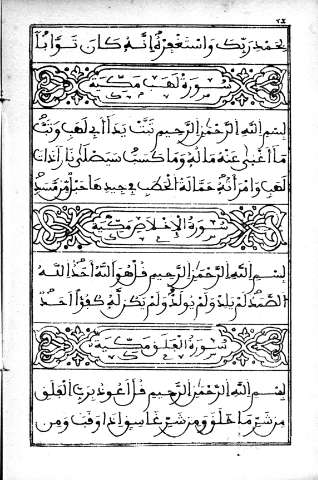 بحمد ربك واستغفره إنه كان توابا
سورة لهب مكية
بسم الله الرحمن الرحيم تبت يدا أبي لهب وتب
ما أغنى عنه ماله وما كسب سيصلى نارا ذات
لهب وامرأته حمالة الحطب في جيدها حبل من مسد
سورة الإخلاص مكية
بسم الله الرحمن الرحيم قل هو الله أحد الله
الصمد لم يلد ولم يولد ولم يكن له كفؤا أحد
سورة الفلق مكية
بسم الله الرحمن الرحيم قل أعوذ برب الفلق
من شر ما خلق ومن شر غاسق إذا وقب ومن